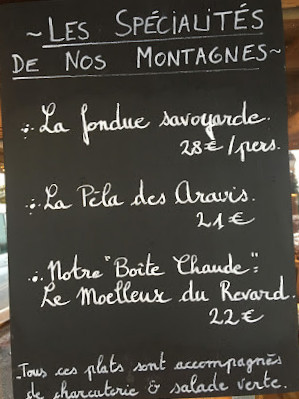 ~LES SPÉCIALITÉS
DE NOS MONTAGNES~
La fondue savoyarde.
28€/pers.
La Péla des Aravis.
21€
Notre "Boîte Chaude":
Le Moelleux du Revard.
22€
-Tous ces plats sont accompagnés
de charcuterie & salade verte.